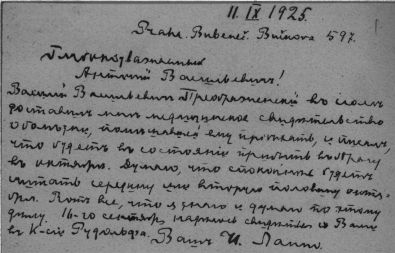 11 IX 1925.
Praha. Bubeneč. Bučkova 597.
Глубокоуважаемый
Антоній Васильевичъ!
Василій Васильевичъ Преображенскій въ іюлѣ
доставилъ мнѣ медицинское свидѣтельство
о болѣзни, помѣшавшей ему пріѣхать, и писалъ,
что будетъ въ состояніи прибыть въ Прагу
въ октябрѣ. Думаю, что спокойнѣе будетъ
считать середину или вторую половину октя-
бря. Вотъ все, что я знаю и думаю по этому
дѣлу. 16-го сентября надѣюсь свидѣться съ Вами
въ К-сіи Рудольфа. Вашъ И. Лаппо.